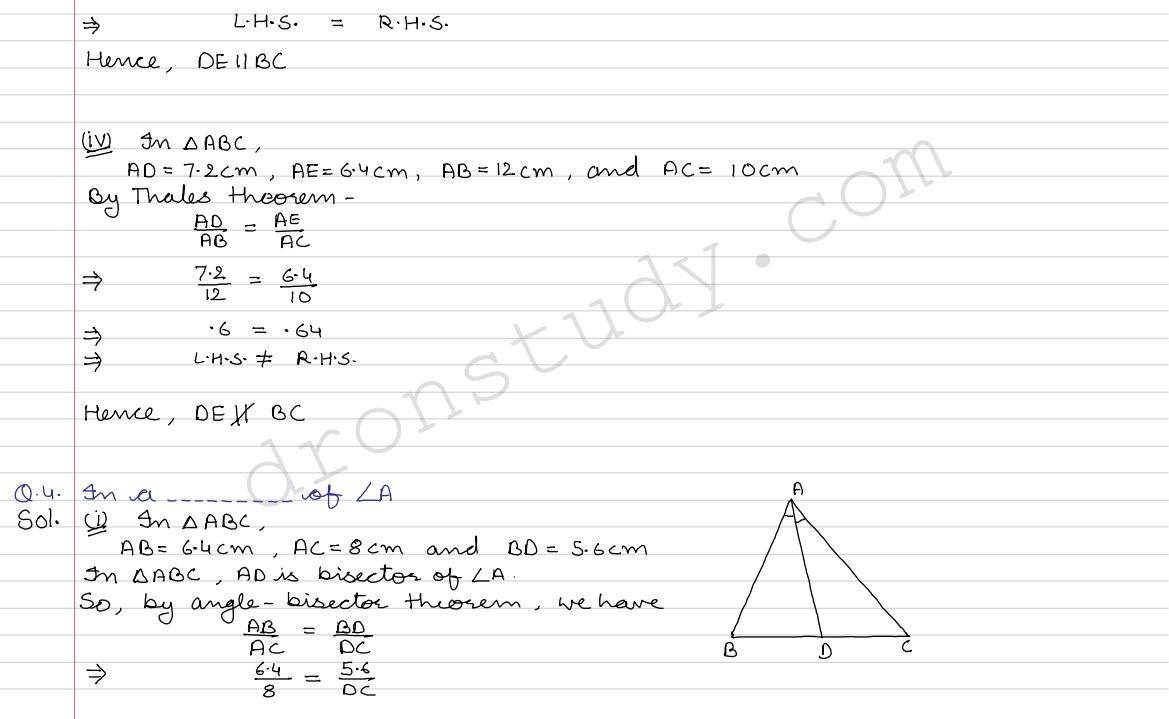 ⇒ L.H.S. = R.H.S.
Hence, DE || BC
(iv) In △ABC,
AD = 7.2cm, AE = 6.4cm, AB = 12cm, and AC = 10cm
By Thales theorem -
AD/AB = AE/AC
⇒ 7.2/12 = 6.4/10
⇒ .6 = .64
⇒ L.H.S. ≠ R.H.S.
Hence, DE ∦ BC
Q.4. In a _ _ _ _ _ _ _ _ _ of ∠A
Sol. (i) In △ABC,
AB = 6.4cm, AC = 8cm and BD = 5.6cm
In △ABC, AD is bisector of ∠A.
So, by angle-bisector theorem, we have
AB/AC = BD/DC
⇒ 6.4/8 = 5.6/DC
A
B D C
dronstudy.com